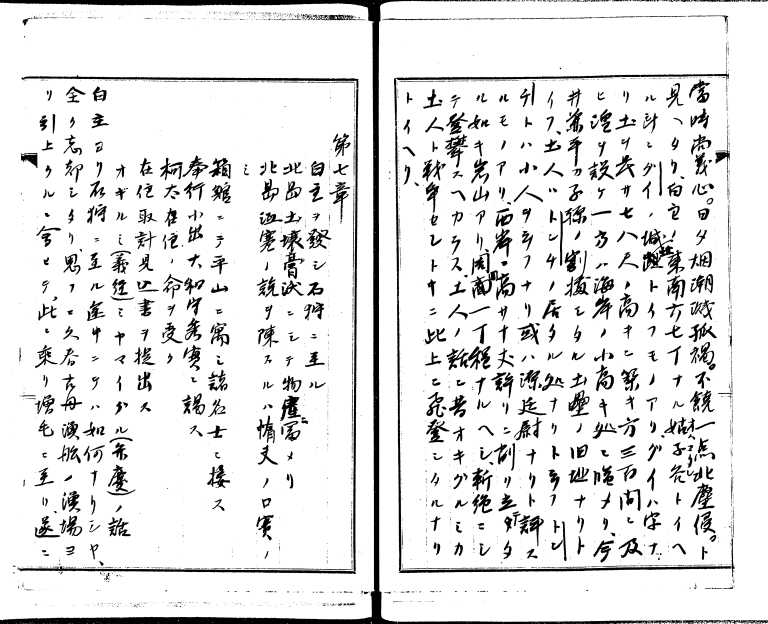 當時尚義心。日夕烟潮滅孤禍。不饒一点北塵侵。ト
見ヘタリ、白主ノ東南六七丁ナル
ル斗シダイノ城趾トイフモノアリ、グイハ字ナ
リ土ヲ以テ七八尺ノ高キニ築キ方三百間ニ及
ヒ湟ヲ設ケ一方ハ海岸ノ小高キ処ニ臨メリ、今
井兼平ノ子孫ノ割拠シタル土壘ノ旧址ナリト
イフ、土人ハトンチノ居タル処ナリト云フトン
チトハ小人ヲ云フナリ或ハ源廷尉ナリト評ス
ルモノアリ、西岸ニ高サ十丈許リニ削リ立タ
ル如キ岩山アリ、周囲一丁程ナルヘシ、斬絶ニシ
テ登攀スヘカラス土人ノ話ニ昔オキグルミカ
土人ト戦争セシトキニ此上ニ飛登シタルナリ
トイヘリ、
第七章
白主ヲ發シ石狩ニ至ル
北島土壌膏沃ニシテ物産ニ冨メリ
北島沍寒ノ説ヲ陳スルハ惰夫ノ口實ノ
ミ
箱館ニテ平山ニ寓シ諸名士ニ接ス
奉行小出大和守秀實ニ謁ス
柯太在住ノ命ヲ受ク
在住取計見込書ヲ提出ス
オキルミ(義経)ヤマイグル(弁慶)ノ話
白主ヨリ石狩ニ至ル途中ニテハ如何ナリシヤ、
全ク忘却シタリ、思フニ久春古丹漁舩ノ漁場ヨ
リ引上クルニ會セテ、此ニ乗リ増毛ニ至リ、遂ニ